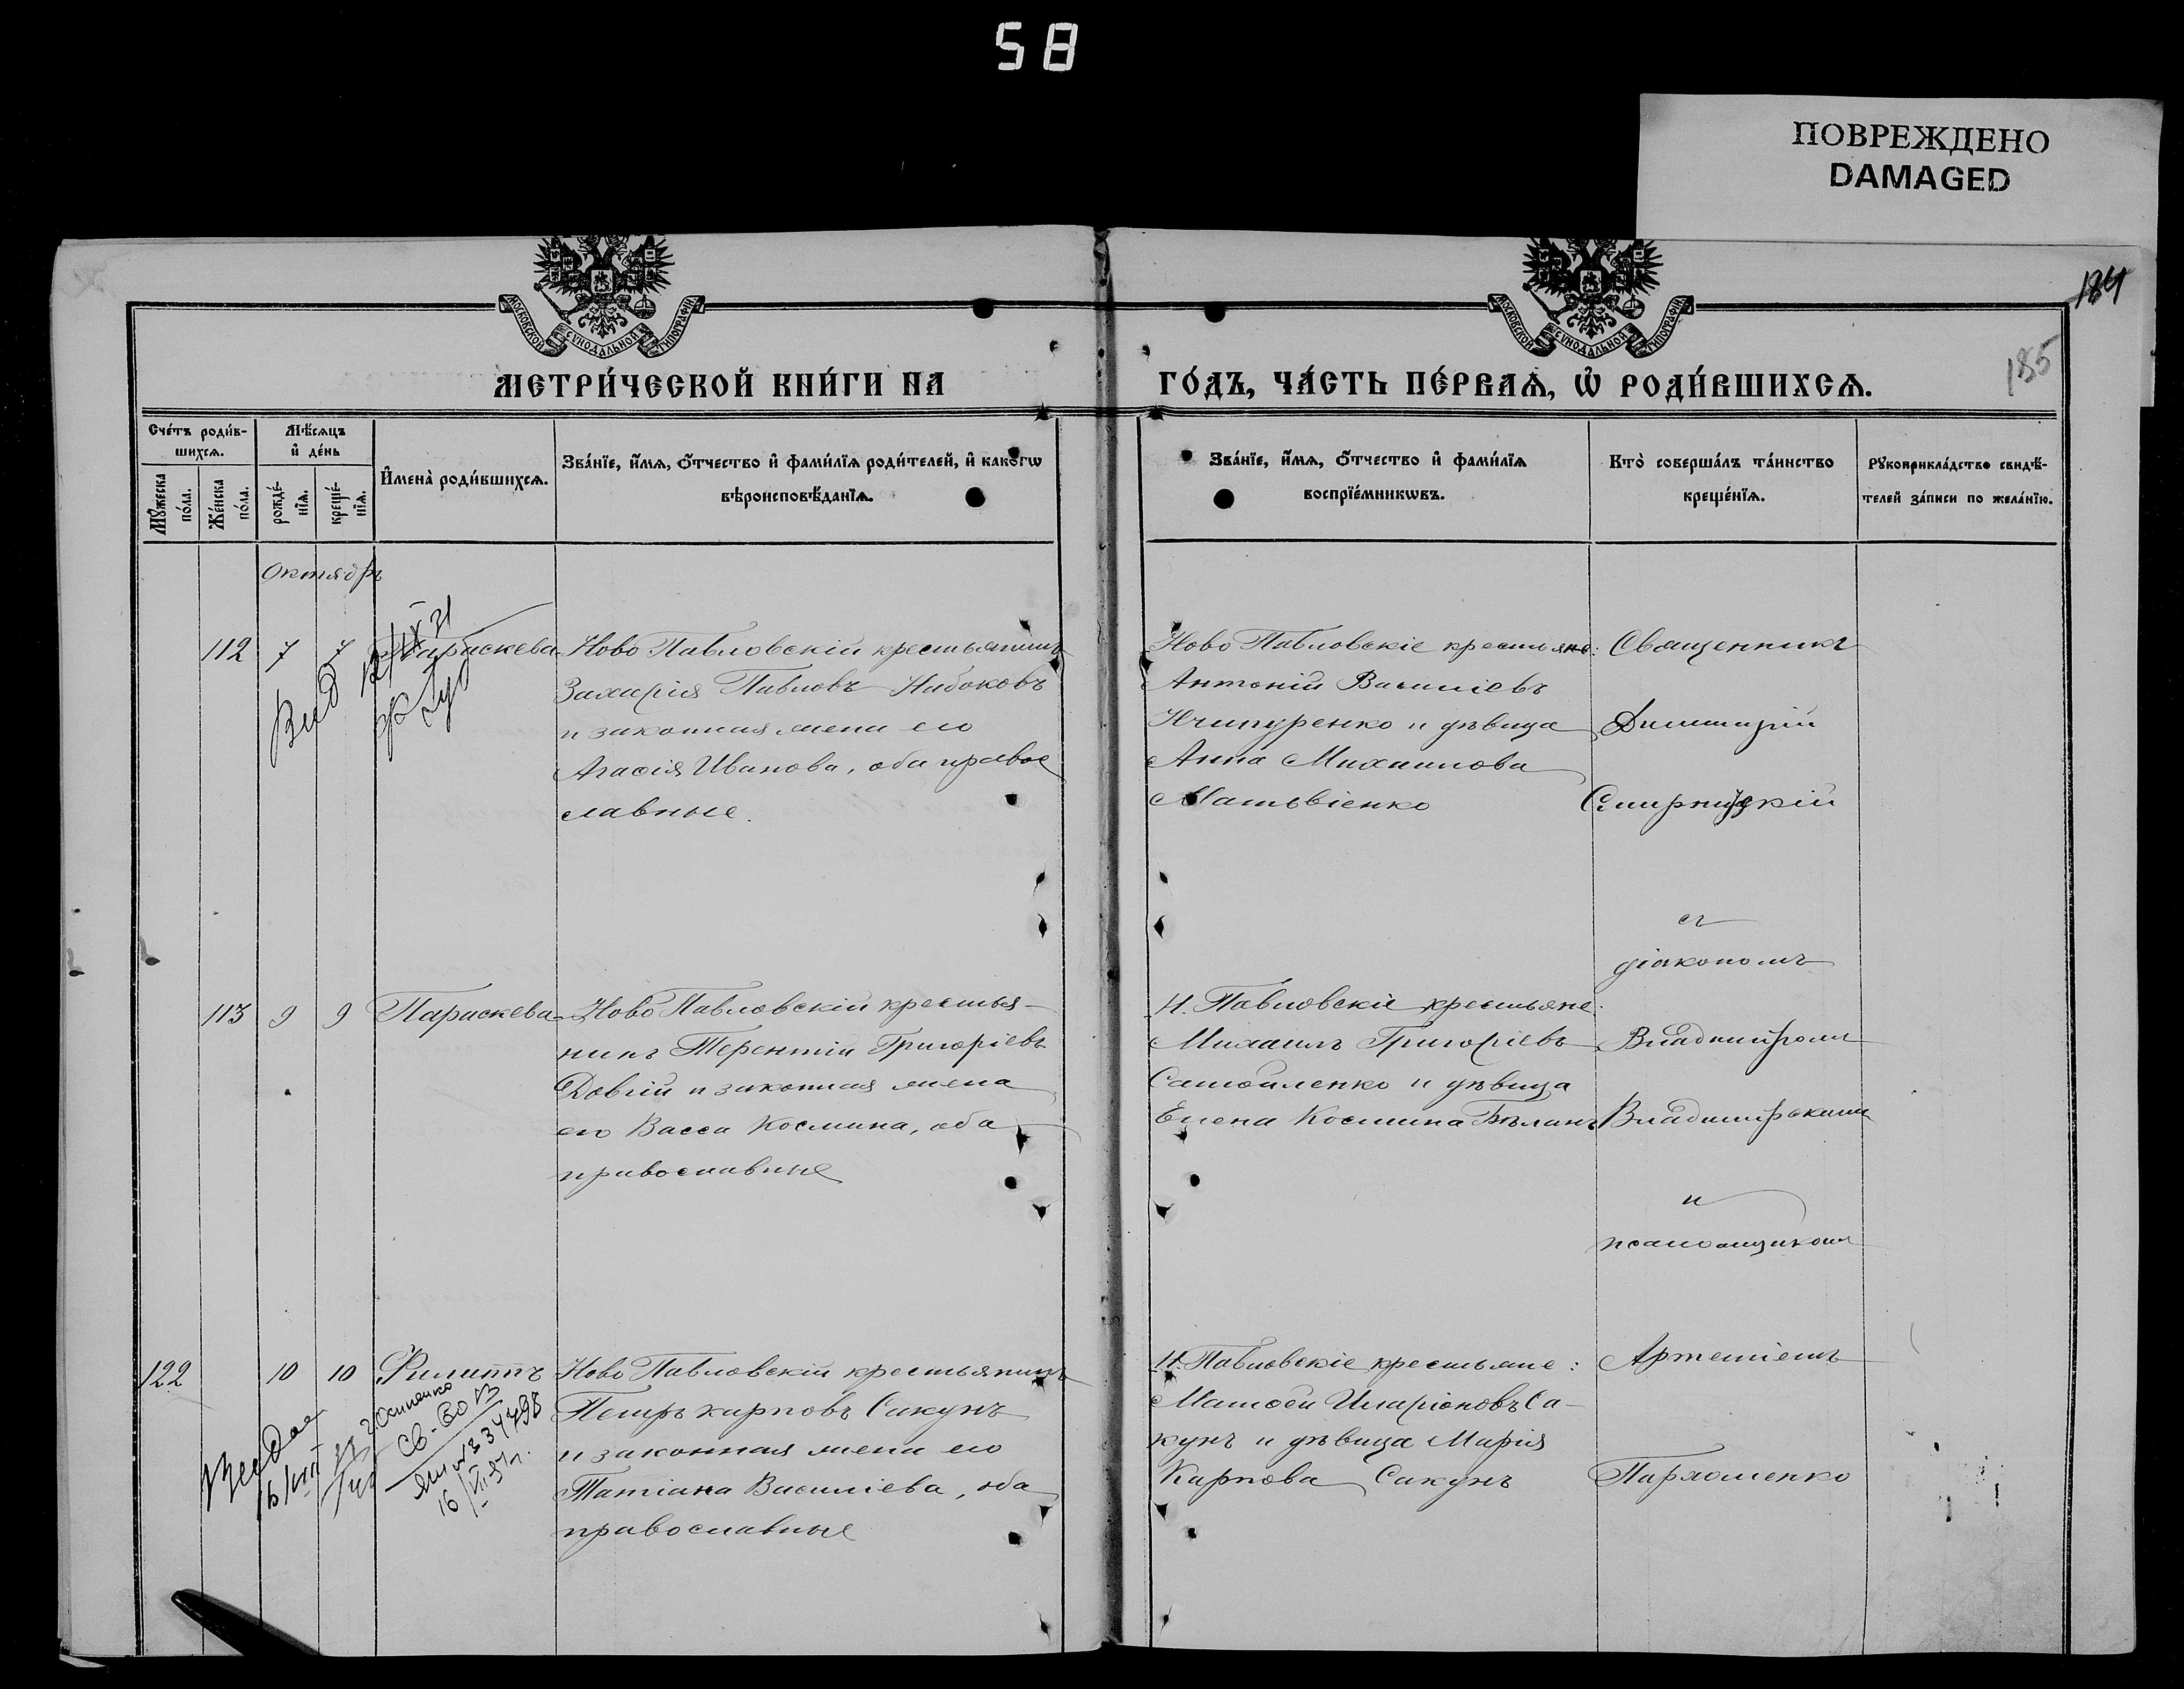 58
ПОВРЕЖДЕНО
DAMAGED
184
185
МОСКОВСКОЙ СѴНОДАЛЬНОЙ ТИПОГРАФІИ
МОСКОВСКОЙ СѴНОДАЛЬНОЙ ТИПОГРАФІИ
МЕТРИ́ЧЕСКОЙ КНИ́ГИ НА
ГО́ДЪ, ЧА́СТЬ ПЕ́РВАѦ, Ѡ҆ РОДИ́ВШИХСѦ.
Сче́тъ роди́в-
шихсѧ.
Мꙋ́жеска
по́ла.
Же́нска
по́ла.
Мѣ́сѧцъ
и҆ де́нь
рожде́-
нїѧ.
креще́-
нїѧ.
И҆мена̀ роди́вшихсѧ.
Зва́нїе, и҆́мѧ, ѻ҆́тчество и҆ фами́лїѧ роди́телей, и҆ како́гѡ
вѣроисповѣ́данїѧ.
Зва́нїе, и҆́мѧ, ѻ҆́тчество и҆ фами́лїѧ
воспрїе́мникѡвъ.
Кто̀ соверша́лъ та́инство
креще́нїѧ.
Рꙋкоприкла́дство свидѣ́-
телей за́писи по жела́нїю.
Октябрь
112 7 7 Параскева
Ново Павловскій крестьянинъ
Захарія Павловъ Набоковъ
и законная жена его
Агафія Иванова, оба право
славные.
Ново Павловскіе крестьяне:
Антоній Василіевъ
Ничипуренко и дѣвица
Анна Михаилова
Матвіенко
Священникъ
Димитрій
Смирницкій
съ
діакономъ
113 9 9 Параскева
Ново Павловскій крестья-
нинъ Терентій Григоріевъ
Довгій и законная жена
его Васса Космина, оба
православные
Н. Павловскіе крестьяне:
Михаилъ Григоріевъ
Самойленко и дѣвица
Елена Космина Бѣланъ
Владиміромъ
Владимірскимъ
и
псаломщикомъ
122 10 10 Филиппъ
Ново Павловскій крестьянинъ
Петръ Карповъ Сакунъ
и законная жена его
Татіана Василіева, оба
православные
Н. Павловскіе крестьяне:
Матѳей Иларіоновъ Са-
кунъ и дѣвица Марія
Карпова Сакунъ
Артеміемъ
Пархоменко
Св-во
№ 34798